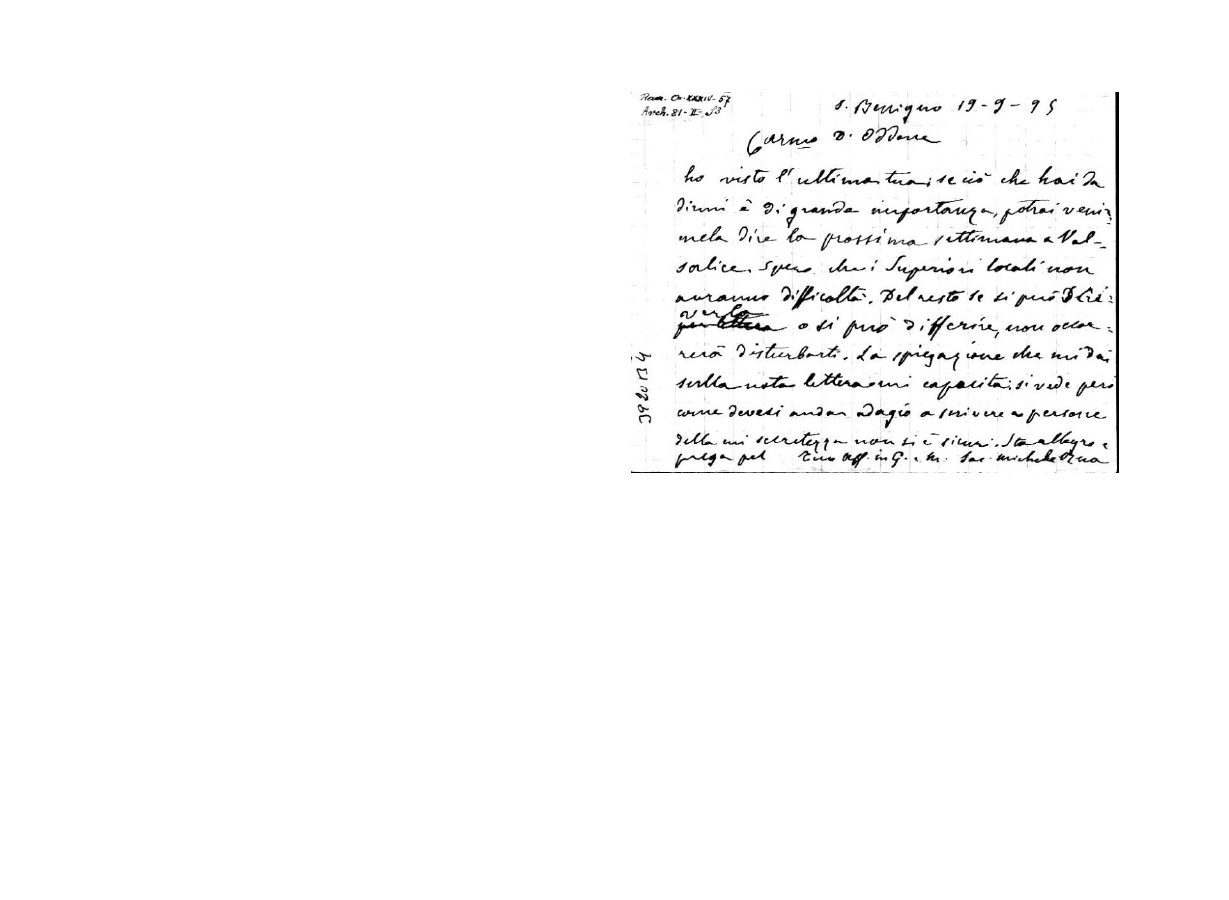 Arch. 81-II-53
S. Benigno 19-9-95
Carmo D. Oddone
ho visto l'ultima tua; se ciò che hai da
dirmi è di grande importanza, potrai venir
mela dire la prossima settimana a Val-
salice. Spero che i Superiori locali non
avranno difficoltà. Del resto se si può scri-
verlo
per lettera o si può differire, non occor-
rerà disturbarti. La spiegazione che mi dai
sulla nota lettera mi capacita; si vede però
come devesi andar adagio a scrivere a persone
della cui secretezza non si è sicuri. Sta allegro e
prega pel Tuo aff. in G. e M. Sac. Michele Rua